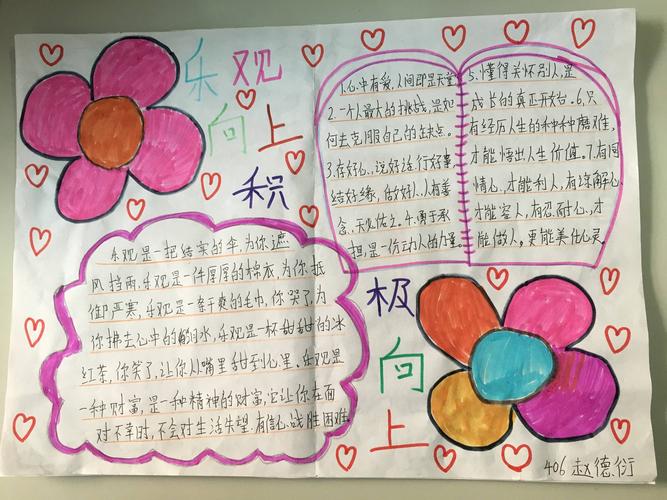 乐观
向上
积
极
向
上
1.心中有爱,人间即是天堂
2.一个人最大的挑战,是如
何去克服自己的缺点。
3.存好心、说好话、行好事
结好缘、做好人,人有善
念,天必佑之。4.勇于承
担,是一份动人的力量。
5.懂得关怀别人,是
成长的真正开始。6.只
有经历人生的种种磨难,
才能悟出人生价值。7.有同
情心,才能利人,有谅解心,
才能容人,有忍耐心,才
能做人,更能美化心灵。
乐观是一把结实的伞,为你遮
风挡雨,乐观是一件厚厚的棉衣,为你抵
御严寒,乐观是一条干爽的毛巾,你哭了,为
你拂去心中的泪水,乐观是一杯甜甜的冰
红茶,你笑了,让你从嘴里甜到心里,乐观是
一种财富,是一种精神的财富,它让你在面
对不幸时,不会对生活失望,有信心战胜困难
406 赵德衍